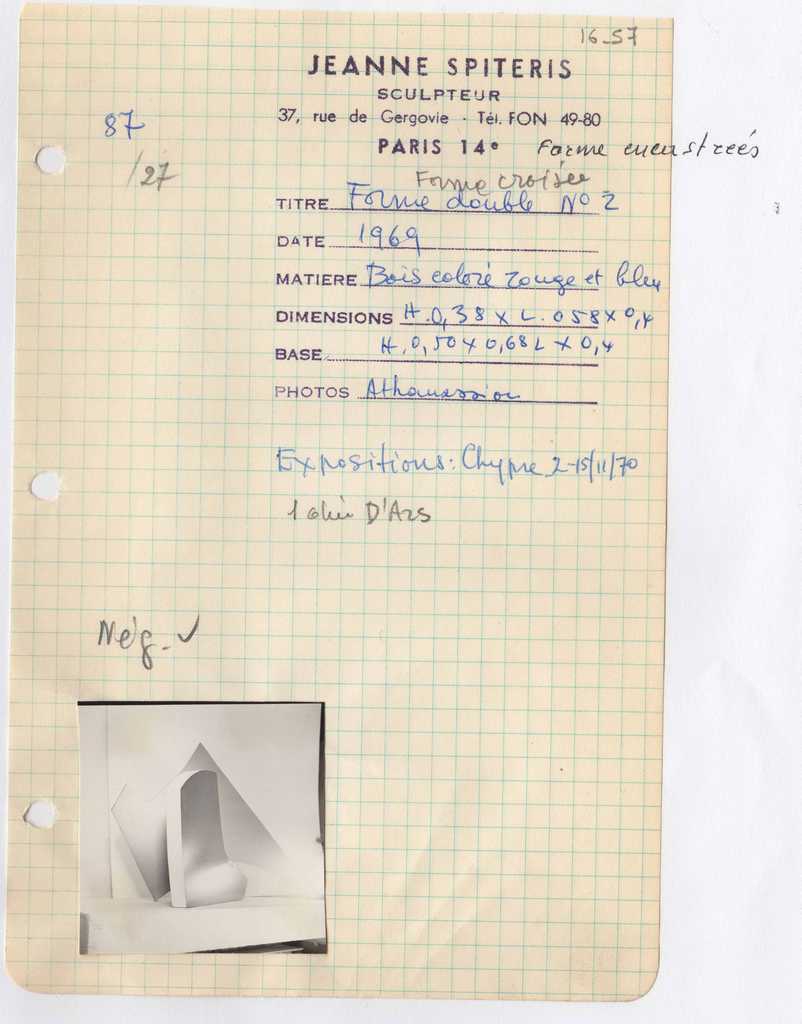 16_57
JEANNE SPITERIS
SCULPTEUR
37, rue de Gergovie · Tél. FON 49-80
PARIS 14e Forme encastreés
87
/27
Forme croisée
TITRE Forme double No 2
DATE 1969
MATIERE Bois coloré rouge et bleu
DIMENSIONS H.0,38 x L.058 x 0,4
BASE H.0,50 x 0,68 L x 0,4
PHOTOS Athanassiou
Expositions: Chypre 2-15/11/70
D'Ars
Nég. ✓